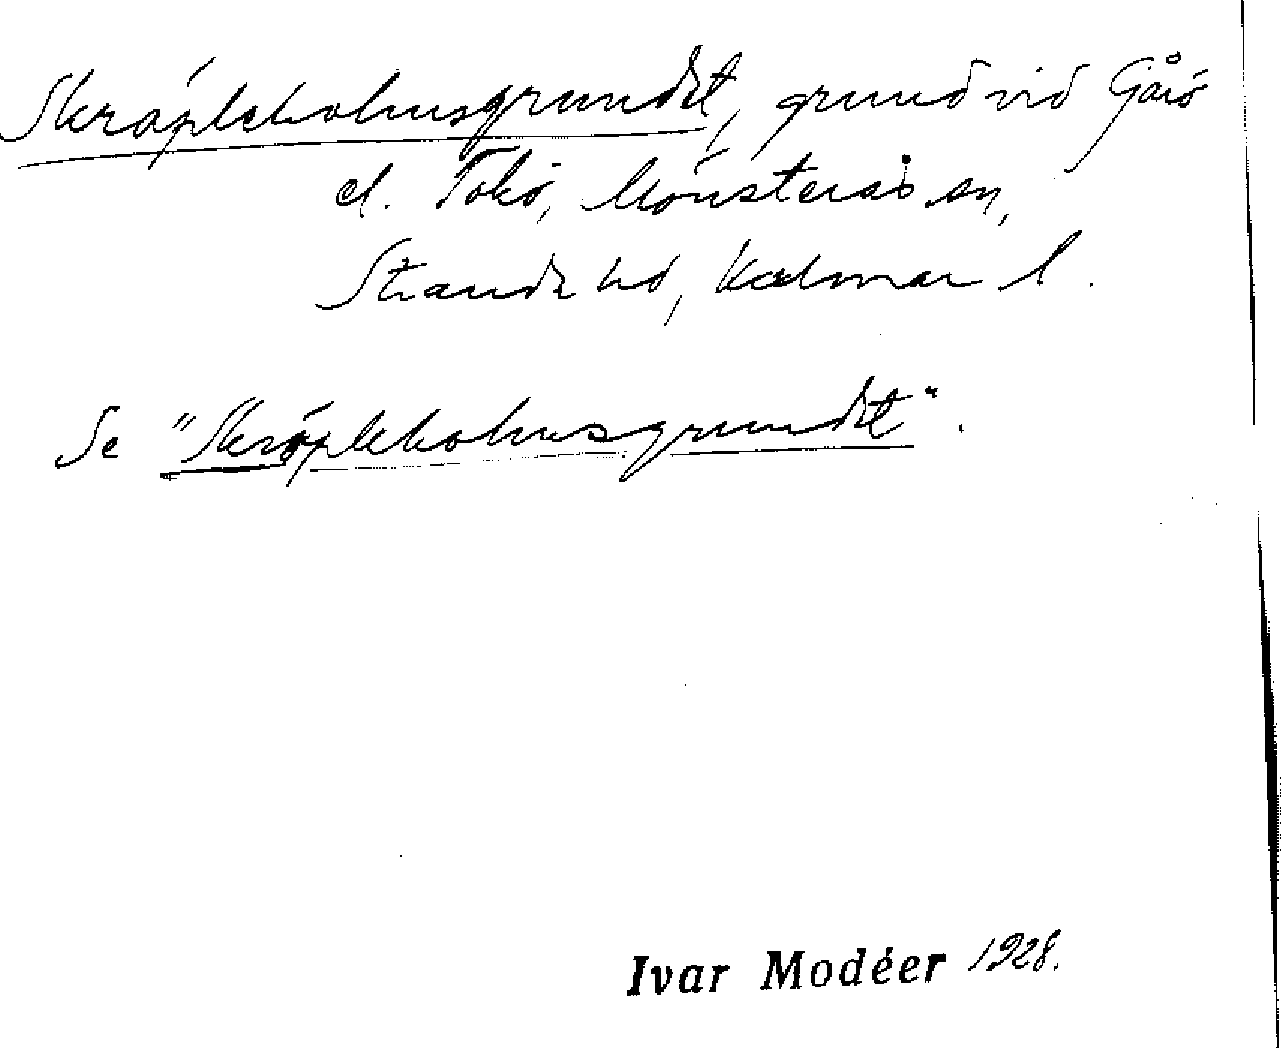 Skräplekolmsgrundet, grund vid Gåsö
el. Tokö, Mönsterås sn,
Stranda hd, Kalmar l.
Se "Skröplekolmsgrundet".
Ivar Modéer 1928.